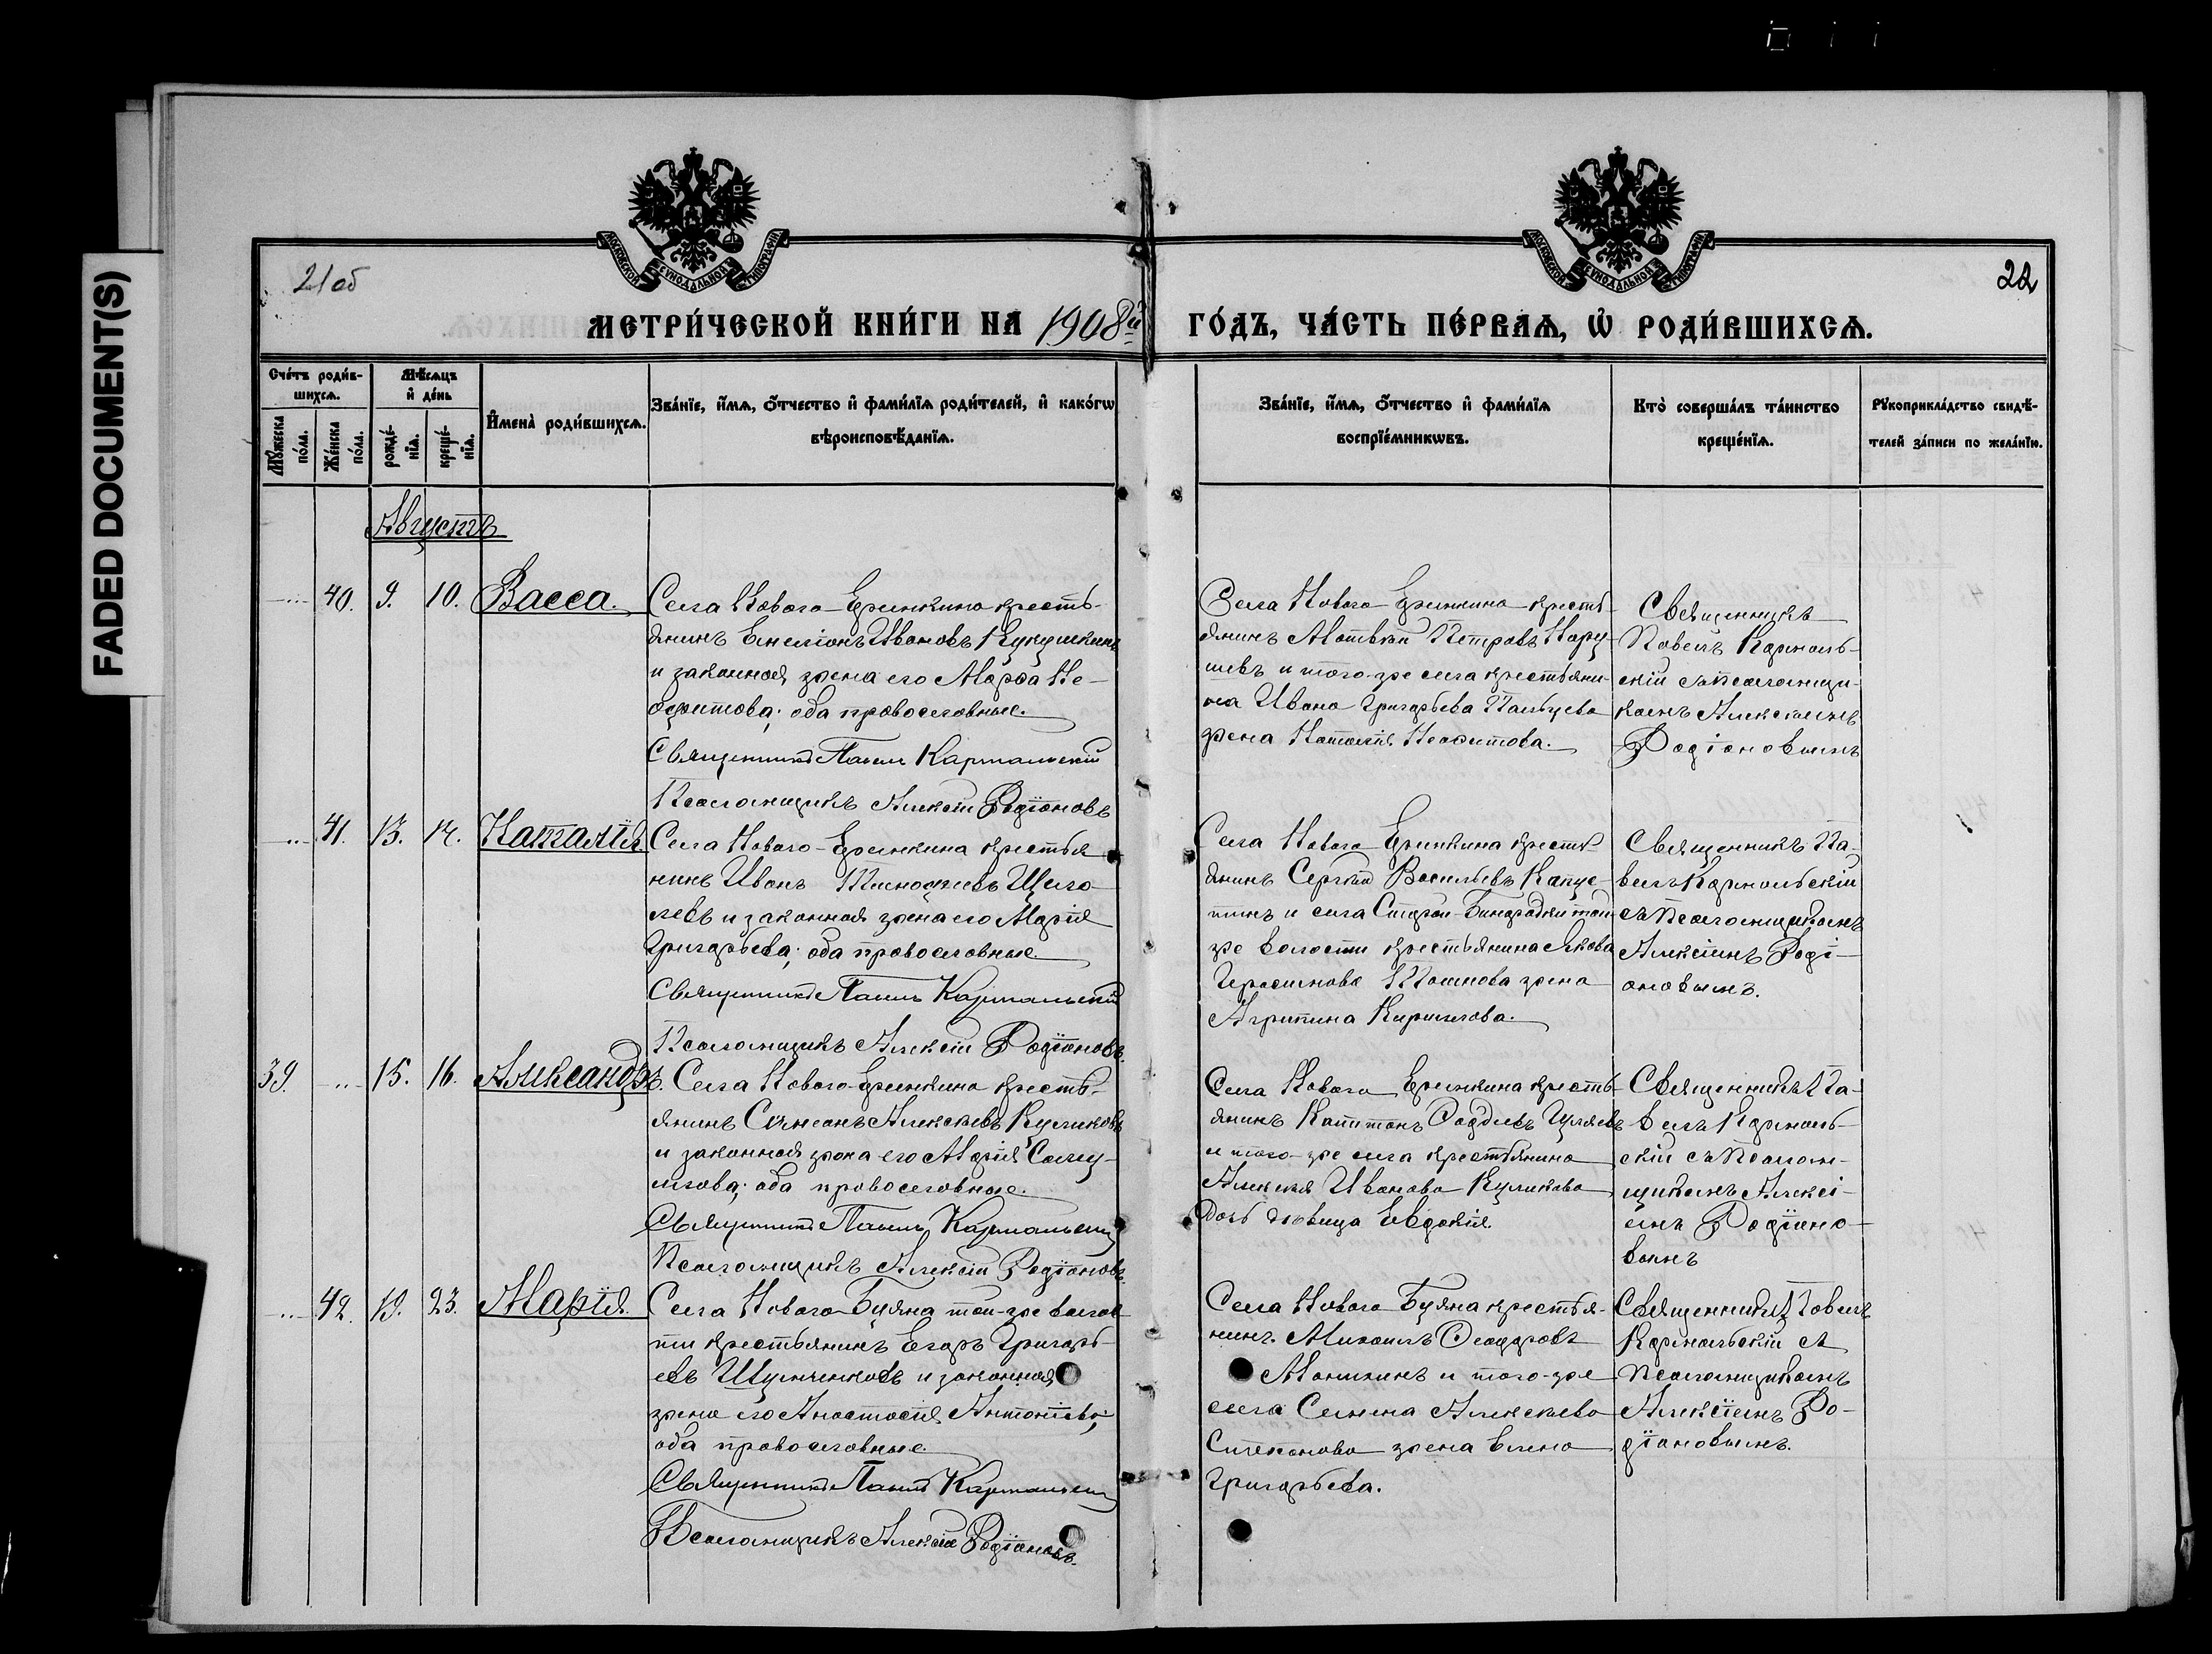 FADED DOCUMENT(S)
МОСКОВСКОЙ СУНОДАЛЬНОЙ ТИПОГРАФІИ
МОСКОВСКОЙ СУНОДАЛЬНОЙ ТИПОГРАФІИ
21 об
22
МЕТРИ́ЧЕСКОЙ КНИ́ГИ НА 1908й ГО́ДЪ, ЧА́СТЬ ПЕ́РВАѦ, Ѡ РОДИ́ВШИХСѦ.
Сче́тъ роди́в-
шихсѧ.
Мꙋ́жеска по́ла.
Же́нска по́ла.
Мѣ́сѧцъ
и҆ де́нь
рожде́-
нїѧ.
креще́-
нїѧ.
И҆мена̀ роди́вшихсѧ.
Зва́нїе, и҆́мѧ, ѻ҆́тчество и҆ фами́лїѧ роди́телей, и҆ како́гѡ
вѣроисповѣ́данїѧ.
Зва́нїе, и҆́мѧ, ѻ҆́тчество и҆ фами́лїѧ
воспрїе́мникѡвъ.
Кто̀ соверша́лъ та́инство
креще́нїѧ.
Рꙋкоприкла́дство свидѣ́-
телей за́писи по жела́нїю.
Августъ
40. 9. 10. Васса.
Села Новаго-Еремкина кресть-
янинъ Ивановъ Кукушкинъ
и законная жена его Марѳа Не-
офитова; оба православные.
Священникъ Павелъ Кармальскій
Псаломщикъ Алексій Родіоновъ
Села Новаго Еремкина кресть-
янинъ Матвѣй Петровъ Нару-
шевъ и того-же села крестьяни-
на Ивана Григорьева Пальцева
жена Наталія Неофитова.
Священникъ
Павелъ Кармаль-
скій съ псаломщи-
комъ Алексѣемъ
Родіоновымъ
41. 13. 14. Наталія.
Села Новаго-Еремкина крестья
нинъ Иванъ Тимофеевъ Щего-
левъ и законная жена его Марія
Григорьева; оба православные.
Священникъ Павелъ Кармальскій
Псаломщикъ Алексій Родіоновъ.
Села Новаго Еремкина кресть
янинъ Сергѣй Васильевъ Капус-
тинъ и села Старой-Бинарадки той
же волости крестьянина Якова
Герасимова жена
Агрипина Кириллова.
Священникъ Па-
велъ Кармальскій
съ псаломщикомъ
Алексіемъ Роді-
оновымъ.
39. 15. 16. Александръ.
Села Новаго-Еремкина кресть-
янинъ Симеонъ Алексѣевъ Куликовъ
и законная жена его Марія Саму-
илова; оба православные.
Священникъ Павелъ Кармальскій
Псаломщикъ Алексій Родіоновъ.
Села Новаго Еремкина кресть-
янинъ Капитонъ Ѳаддѣевъ
и того-же села крестьянина
Алексѣя Иванова Куликова
дочь дѣвица Евдокія.
Священникъ Па-
велъ Кармаль-
скій съ псалом-
щикомъ Алексі-
емъ Родіоно-
вымъ
42. 19. 23. Марія.
Села Новаго-Буяна той-же волос
ти крестьянинъ Егоръ Григорь-
евъ и законная
жена его Анастасія Антоніева;
оба православные.
Священникъ Павелъ Кармальскій
Псаломщикъ Алексій Родіоновъ.
Села Новаго Буяна крестья-
нинъ Михаилъ Ѳеодоровъ
Манихинъ и того-же
села Семена Алексѣева
Степанова жена Елена
Григорьева.
Священникъ Павелъ
Кармальскій съ
псаломщикомъ
Алексіемъ Ро-
діоновымъ.